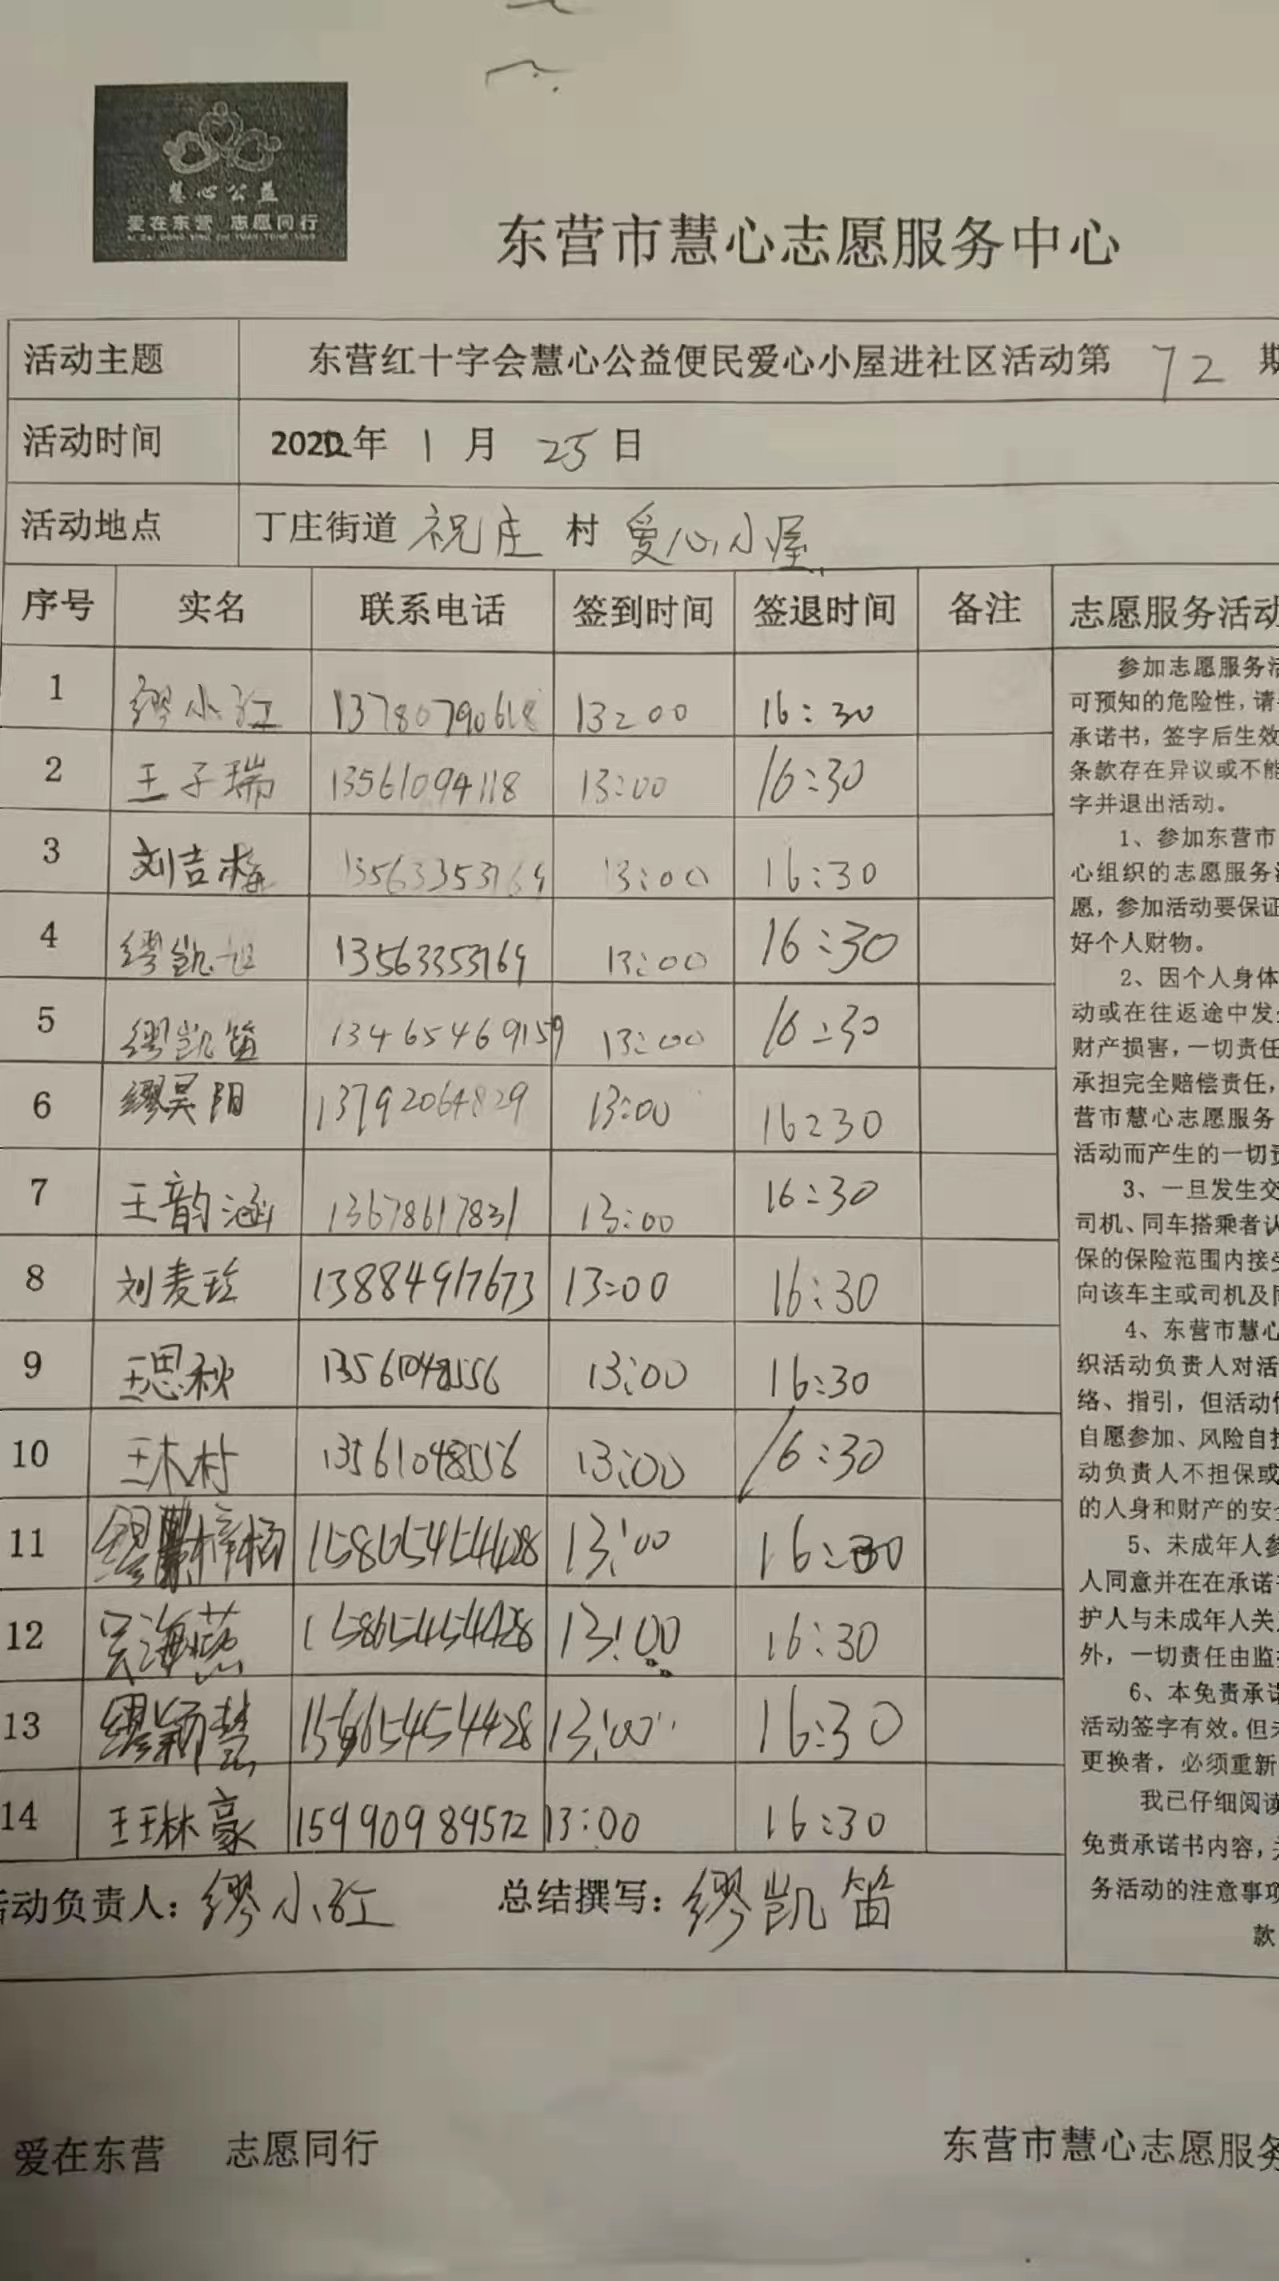 慧心公益
爱在东营 志愿同行
东营市慧心志愿服务中心
活动主题 东营红十字会慧心公益便民爱心小屋进社区活动第 72 期
活动时间 2022年 1 月 25 日
活动地点 丁庄街道 祝庄 村 爱心小屋
序号 实名 联系电话 签到时间 签退时间 备注 志愿服务活动
1 缪小红 13780790618 13:00 16:30
2 王子瑞 13561094118 13:00 16:30
3 刘吉梅 13563353169 13:00 16:30
4 缪凯旭 13563353169 13:00 16:30
5 缪凯笛 13465469159 13:00 16:30
6 缪昊阳 13792064829 13:00 16:30
7 王韵涵 13678617831 13:00 16:30
8 刘麦玲 13884917673 13:00 16:30
9 王思秋 13561048556 13:00 16:30
10 王木村 13561048556 13:00 16:30
11 缪梓杨 15865454428 13:00 16:30
12 吴海燕 15865454428 13:00 16:30
13 缪颖慧 15665454428 13:00 16:30
14 王琳豪 15990989572 13:00 16:30
参加志愿服务活
可预知的危险性，请
承诺书，签字后生效
条款存在异议或不能
字并退出活动。
1、参加东营市
心组织的志愿服务活
愿，参加活动要保证
好个人财物。
2、因个人身体
动或在往返途中发生
财产损害，一切责任
承担完全赔偿责任，
营市慧心志愿服务
活动而产生的一切责
3、一旦发生交
司机、同车搭乘者认
保的保险范围内接受
向该车主或司机及同
4、东营市慧心
织活动负责人对活
络、指引，但活动
自愿参加、风险自担
动负责人不担保或
的人身和财产的安全
5、未成年人参
人同意并在在承诺书
护人与未成年人关
外，一切责任由监
6、本免责承诺
活动签字有效。但未
更换者，必须重新
我已仔细阅读
免责承诺书内容，并
务活动的注意事项
款
活动负责人：缪小红 总结撰写：缪凯笛
爱在东营 志愿同行 东营市慧心志愿服务